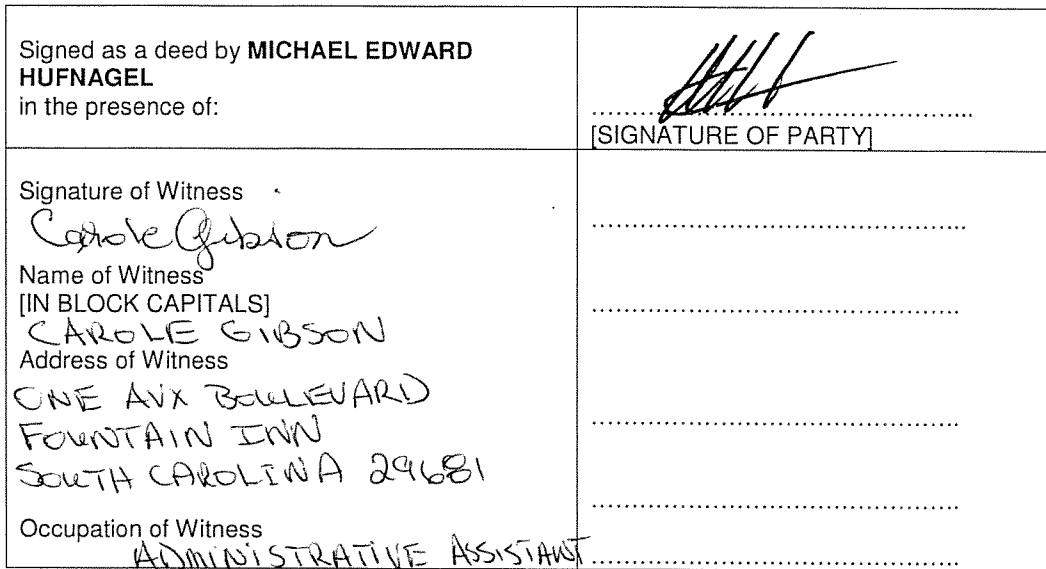 Signed as a deed by MICHAEL EDWARD
HUFNAGEL
in the presence of:
[SIGNATURE OF PARTY]
Signature of Witness
Carole Gibson
Name of Witness
[IN BLOCK CAPITALS]
CAROLE GIBSON
Address of Witness
ONE AVX BOULEVARD
FOUNTAIN INN
SOUTH CAROLINA 29681
Occupation of Witness
ADMINISTRATIVE ASSISTANT